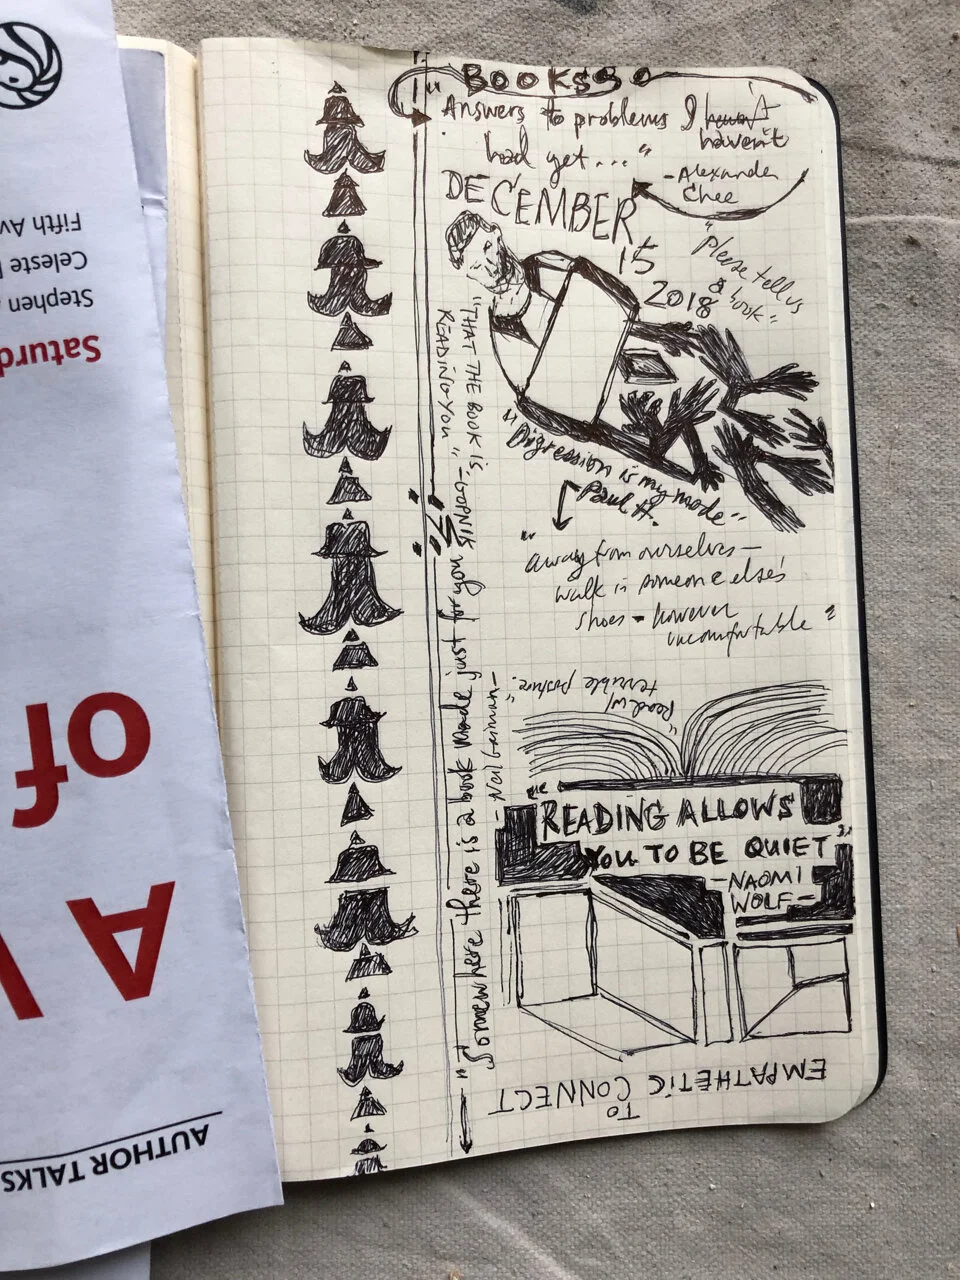 BOOKS
"Answers to problems I haven't
haven't
had yet..."
-Alexander
Chee
DECEMBER
15
2018
"Please tell us
a book"
"THAT THE BOOK IS
READING YOU"
"Digression is my mode"
Paul H.
"away from ourselves—
walk in someone else's
shoes - however
uncomfortable"
"Read w/
terrible posture."
"READING ALLOWS
YOU TO BE QUIET"
-NAOMI
WOLF-
"Somewhere there is a book made just for you"
-Neil Gaiman-
EMPATHETIC CONNECT
TO
AUTHOR TALKS
A
of
Saturd
Stephen
Celeste
Fifth Av